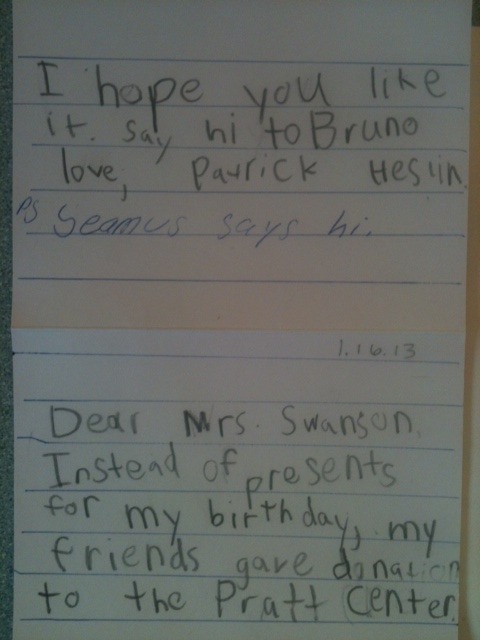 I hope you like
it. say hi to Bruno
love, Patrick Heslin
PS Seamus says hi.
1.16.13
Dear Mrs. Swanson.
Instead of presents
for my birthday, my
friends gave donation
to the Pratt Center.